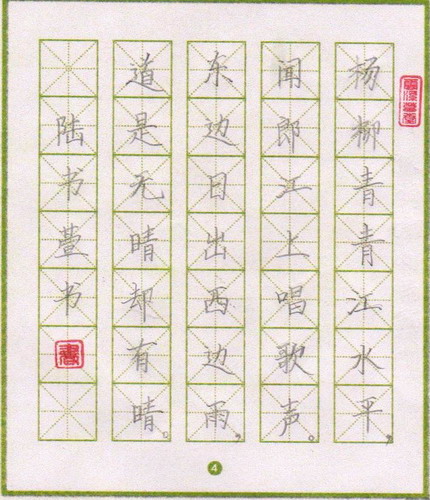 杨柳青青江水平，
闻郎江上唱歌声。
东边日出西边雨，
道是无晴却有晴。
陆书萱书
4